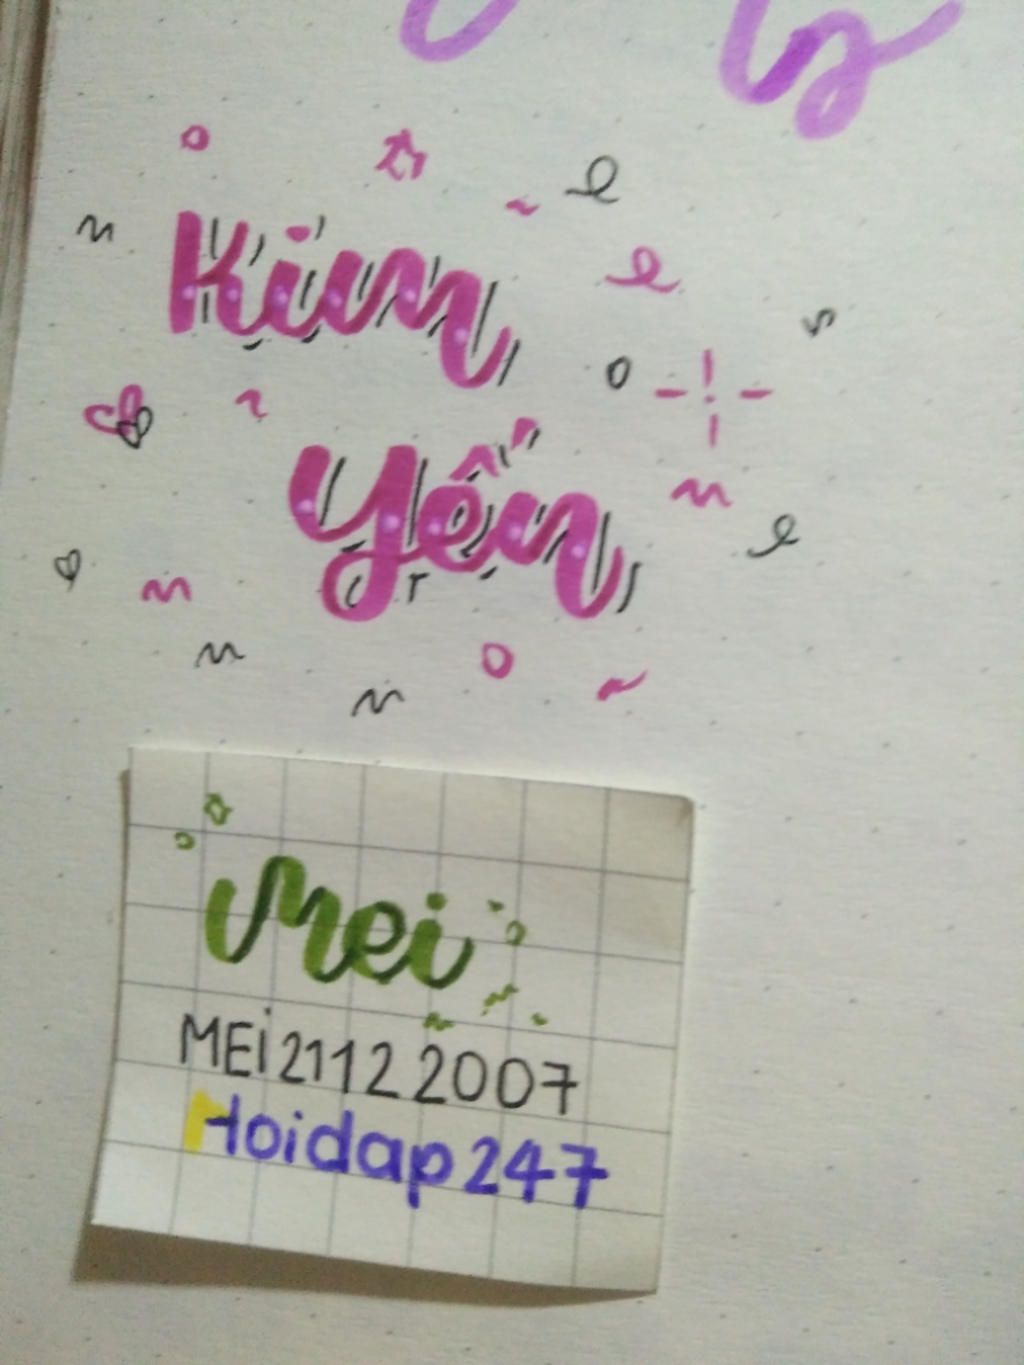 Kim
Yến
Mei
MEi21122007
Hoidap247